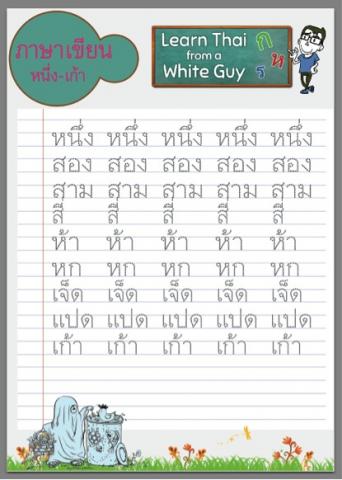 ภาษาเขียน
หนึ่ง-เก้า
Learn Thai
from a
White Guy
ก
ห
ร
หนึ่ง หนึ่ง หนึ่ง หนึ่ง หนึ่ง
สอง สอง สอง สอง สอง
สาม สาม สาม สาม สาม
สี่ สี่ สี่ สี่ สี่
ห้า ห้า ห้า ห้า ห้า
หก หก หก หก หก
เจ็ด เจ็ด เจ็ด เจ็ด เจ็ด
แปด แปด แปด แปด แปด
เก้า เก้า เก้า เก้า เก้า